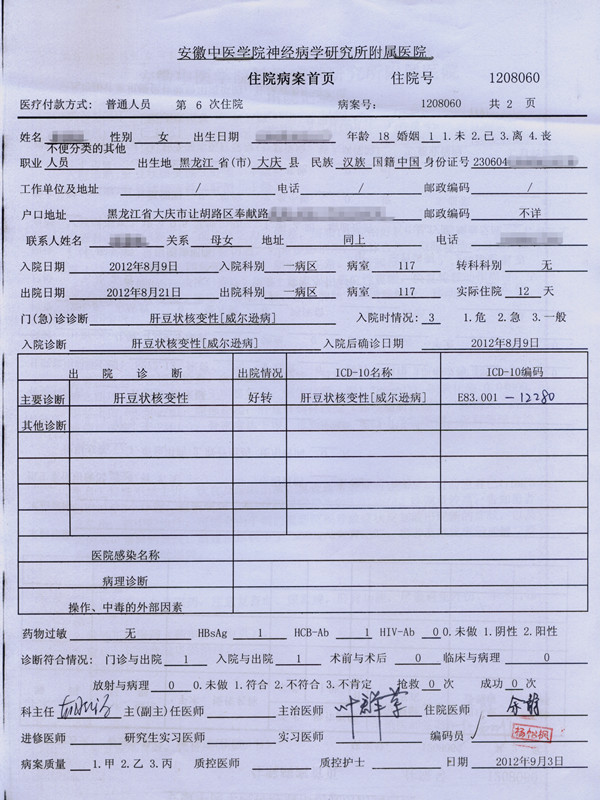 安徽中医学院神经病学研究所附属医院
住院病案首页 住院号 1208060
医疗付款方式: 普通人员 第 6 次住院 病案号: 1208060 共 2 页
姓名 性别 女 出生日期 年龄 18 婚姻 1 1.未 2.已 3.离 4.丧
不便分类的其他
职业 人员 出生地 黑龙江 省(市) 大庆 县 民族 汉族 国籍 中国 身份证号 230604
工作单位及地址 / 电话 / 邮政编码 /
户口地址 黑龙江省大庆市让胡路区奉献路 邮政编码 不详
联系人姓名 关系 母女 地址 同上 电话
入院日期 2012年8月9日 入院科别 一病区 病室 117 转科科别 无
出院日期 2012年8月21日 出院科别 一病区 病室 117 实际住院 12 天
门(急)诊诊断 肝豆状核变性[威尔逊病] 入院时情况: 3 1.危 2.急 3.一般
入院诊断 肝豆状核变性[威尔逊病] 入院后确诊日期 2012年8月9日
出院诊断 出院情况 ICD-10名称 ICD-10编码
主要诊断 肝豆状核变性 好转 肝豆状核变性[威尔逊病] E83.001 -12280
其他诊断
医院感染名称
病理诊断
操作、中毒的外部因素
药物过敏 无 HBsAg 1 HCB-Ab 1 HIV-Ab 0 0.未做 1.阴性 2.阳性
诊断符合情况: 门诊与出院 1 入院与出院 1 术前与术后 0 临床与病理 0
放射与病理 0 0.未做 1.符合 2.不符合 3.不肯定 抢救 0 次 成功 0 次
科主任 主(副主)任医师 主治医师 住院医师
进修医师 研究生实习医师 实习医师 编码员
病案质量 1.甲 2.乙 3.丙 质控医师 质控护士 日期 2012年9月3日